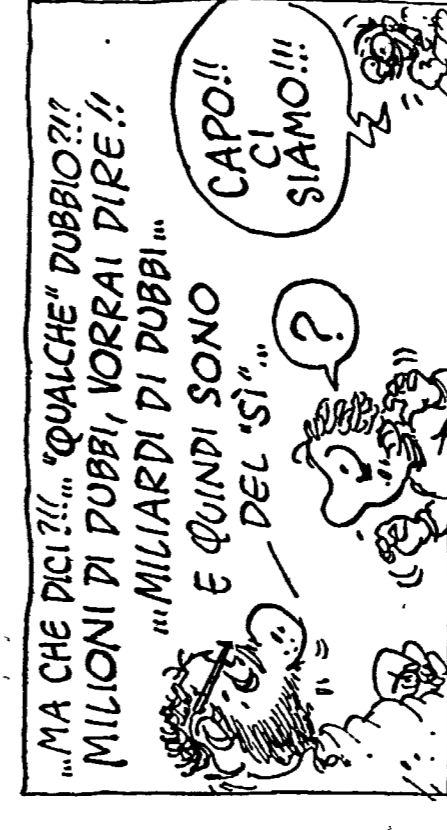 ...MA CHE DICI?!!... "QUALCHE" DUBBIO?!?
MILIONI DI DUBBI, VORRAI DIRE!!
...MILIARDI DI DUBBI...
E QUINDI SONO
DEL "SÌ"...
?
CAPO!!
CI
SIAMO!!!